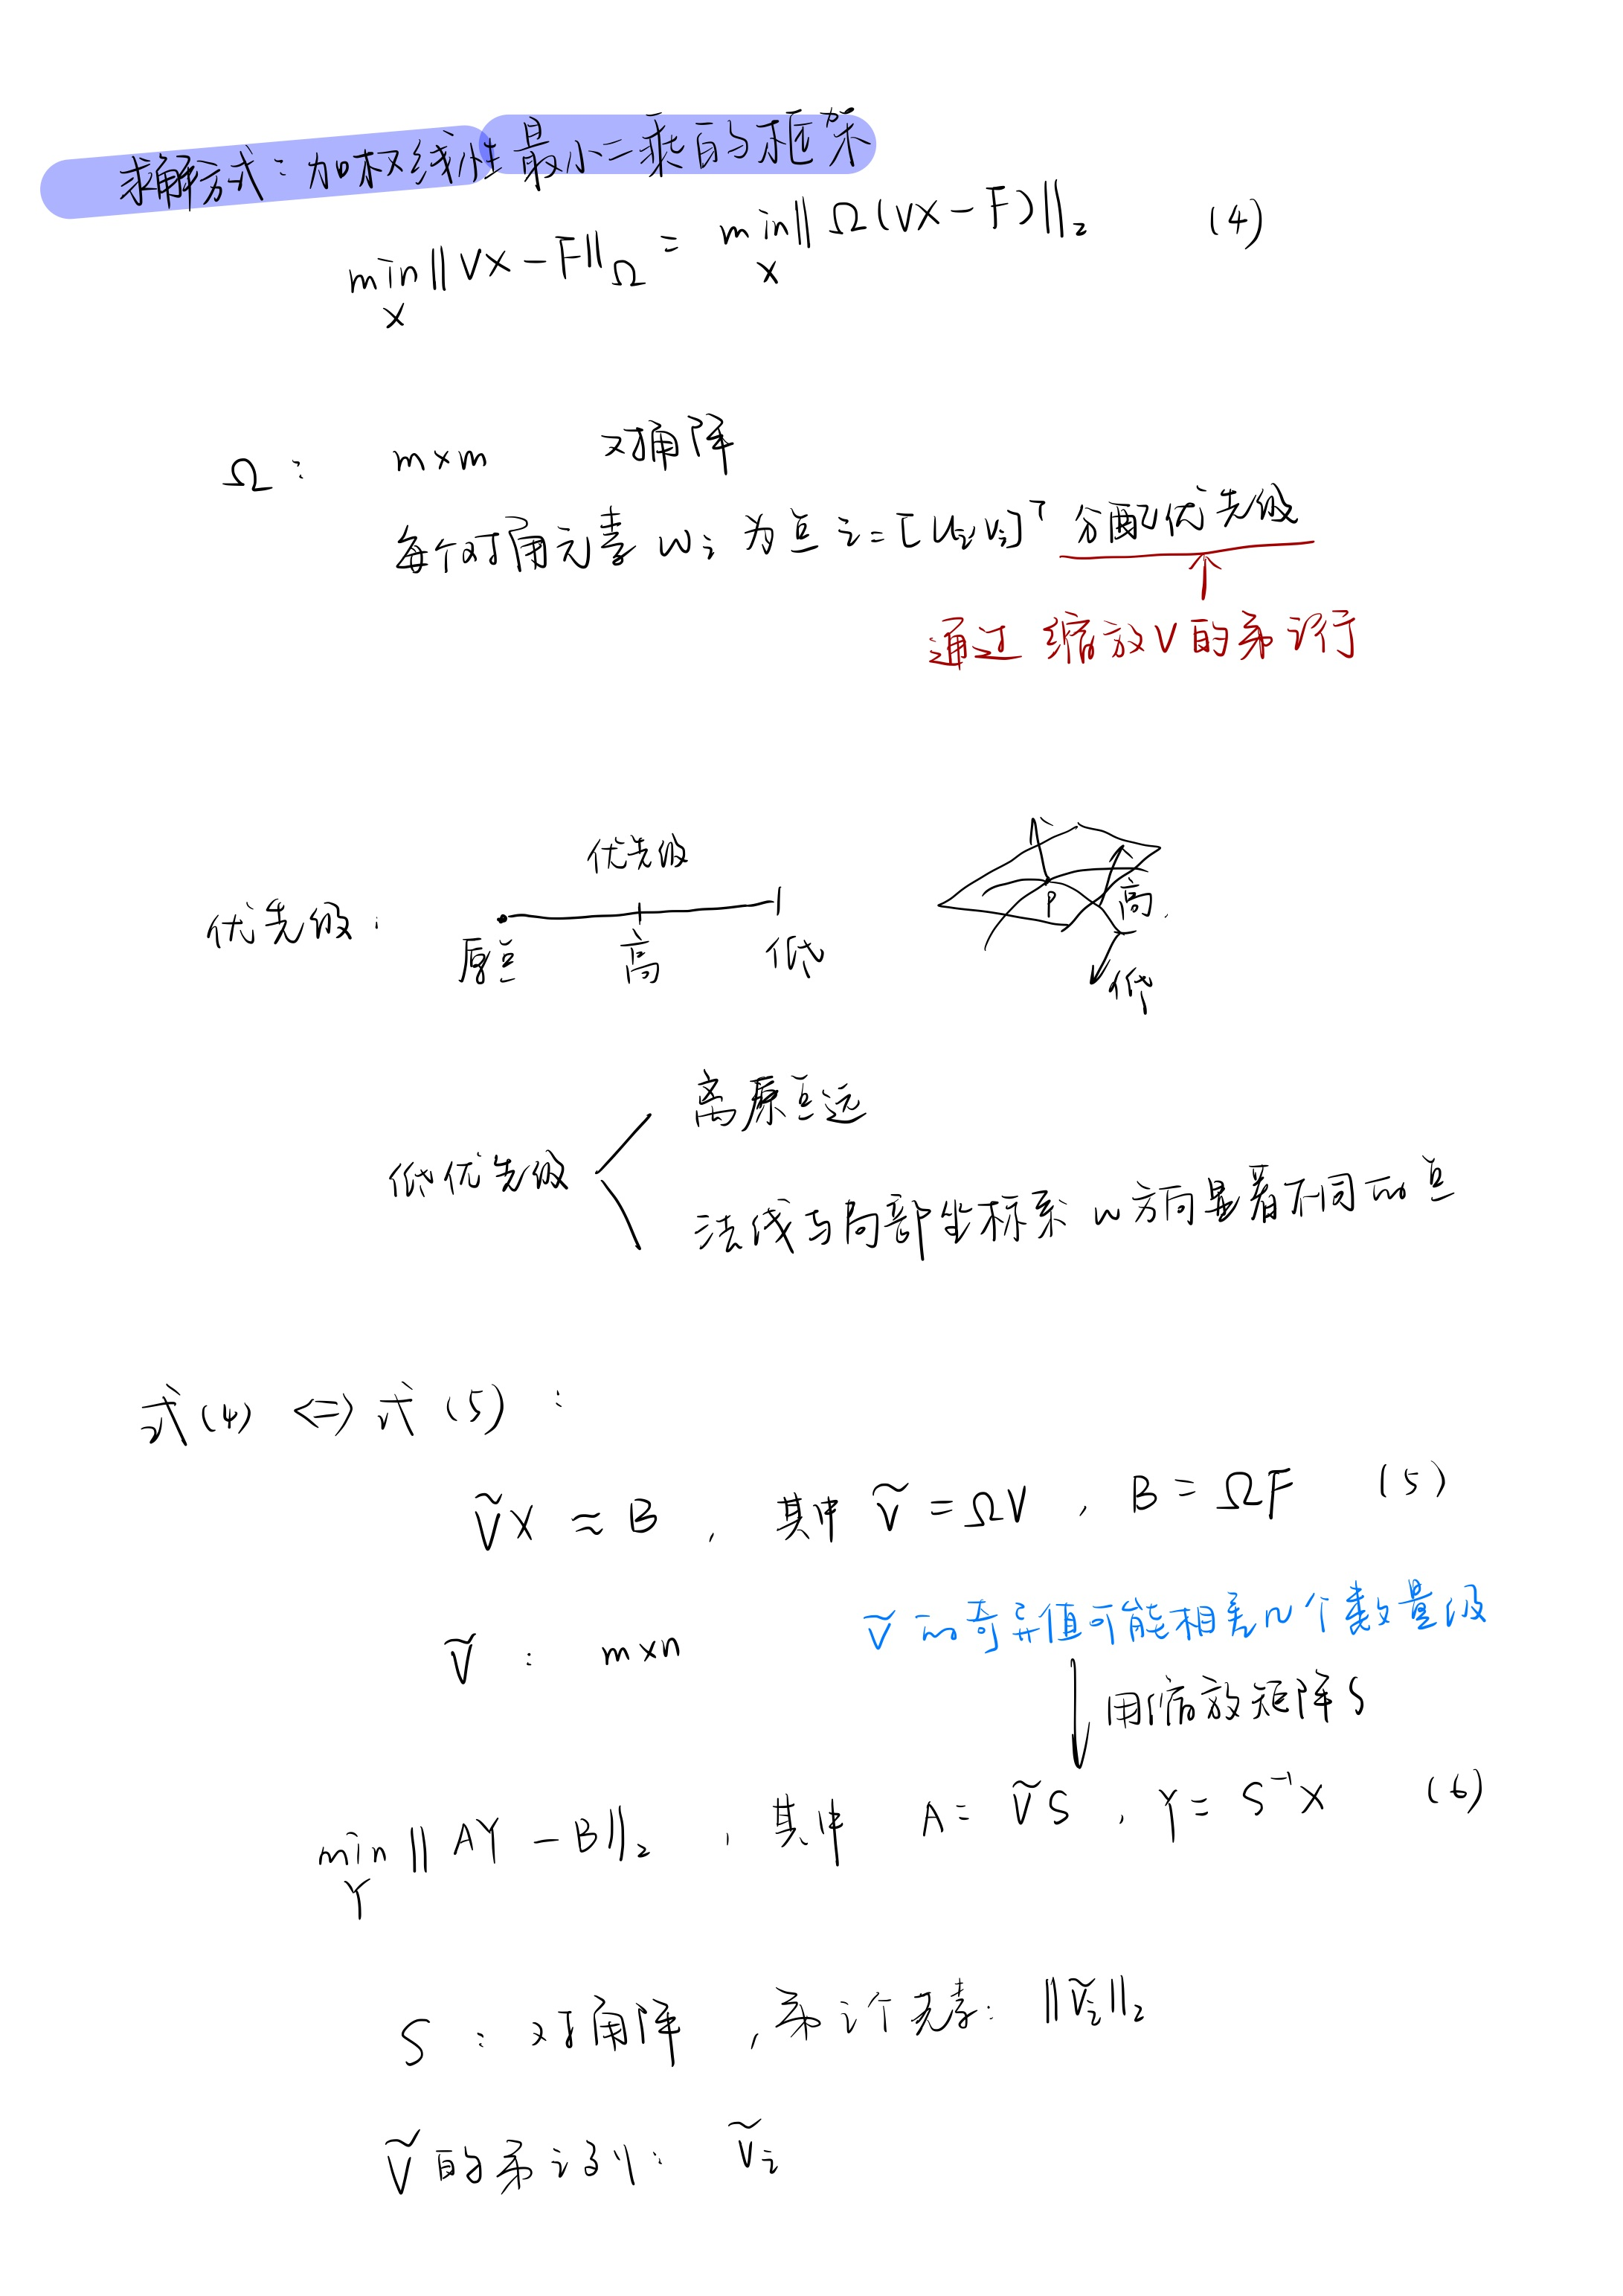 求解方式：加权线性最小二乘的框架
min‖VX-F‖Ω = min‖Ω(VX-F)‖₂ (4)
X X
Ω: m×m 对角阵
每个对角元素 wi 为点 i=[ui,vi]ᵀ 分配优先级
↑
通过缩放V的第i行
优先级
优先级：
原点 高 低
P 高
低
离原点远
低优先级
法线与局部坐标系 w方向显著不同的点
式(4) <=> 式(5)：
ṼX ≈ B , 其中 Ṽ = ΩV , B = ΩF (5)
Ṽ : m×n Ṽ的奇异值可能相差n个数量级
用缩放矩阵S
min‖AY-B‖₂ , 其中 A= ṼS , Y= S⁻¹X (6)
Y
S : 对角阵 , 第i个元素: ‖ṽi‖₂
Ṽ的第i列: ṽi